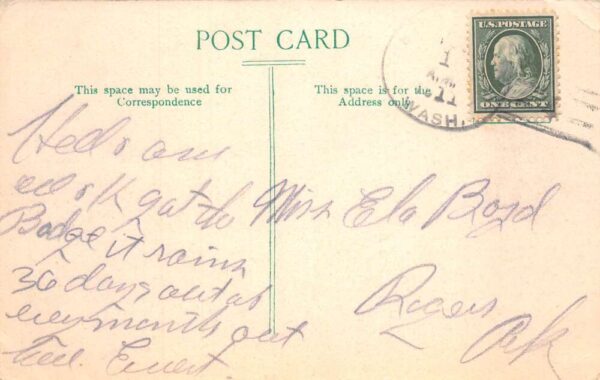 POST CARD
This space may be used for
Correspondence
This space is for the
Address only
1
11
WASH.
U.S. POSTAGE
ONE CENT
Hello am
O K
it rains
36 days out of
every month out
Miss Ela Boyd
Rogers
Ark